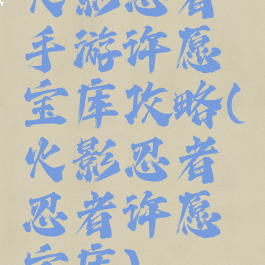 火影忍者
手游许愿
宝库攻略(
火影忍者
忍者许愿
宝库)